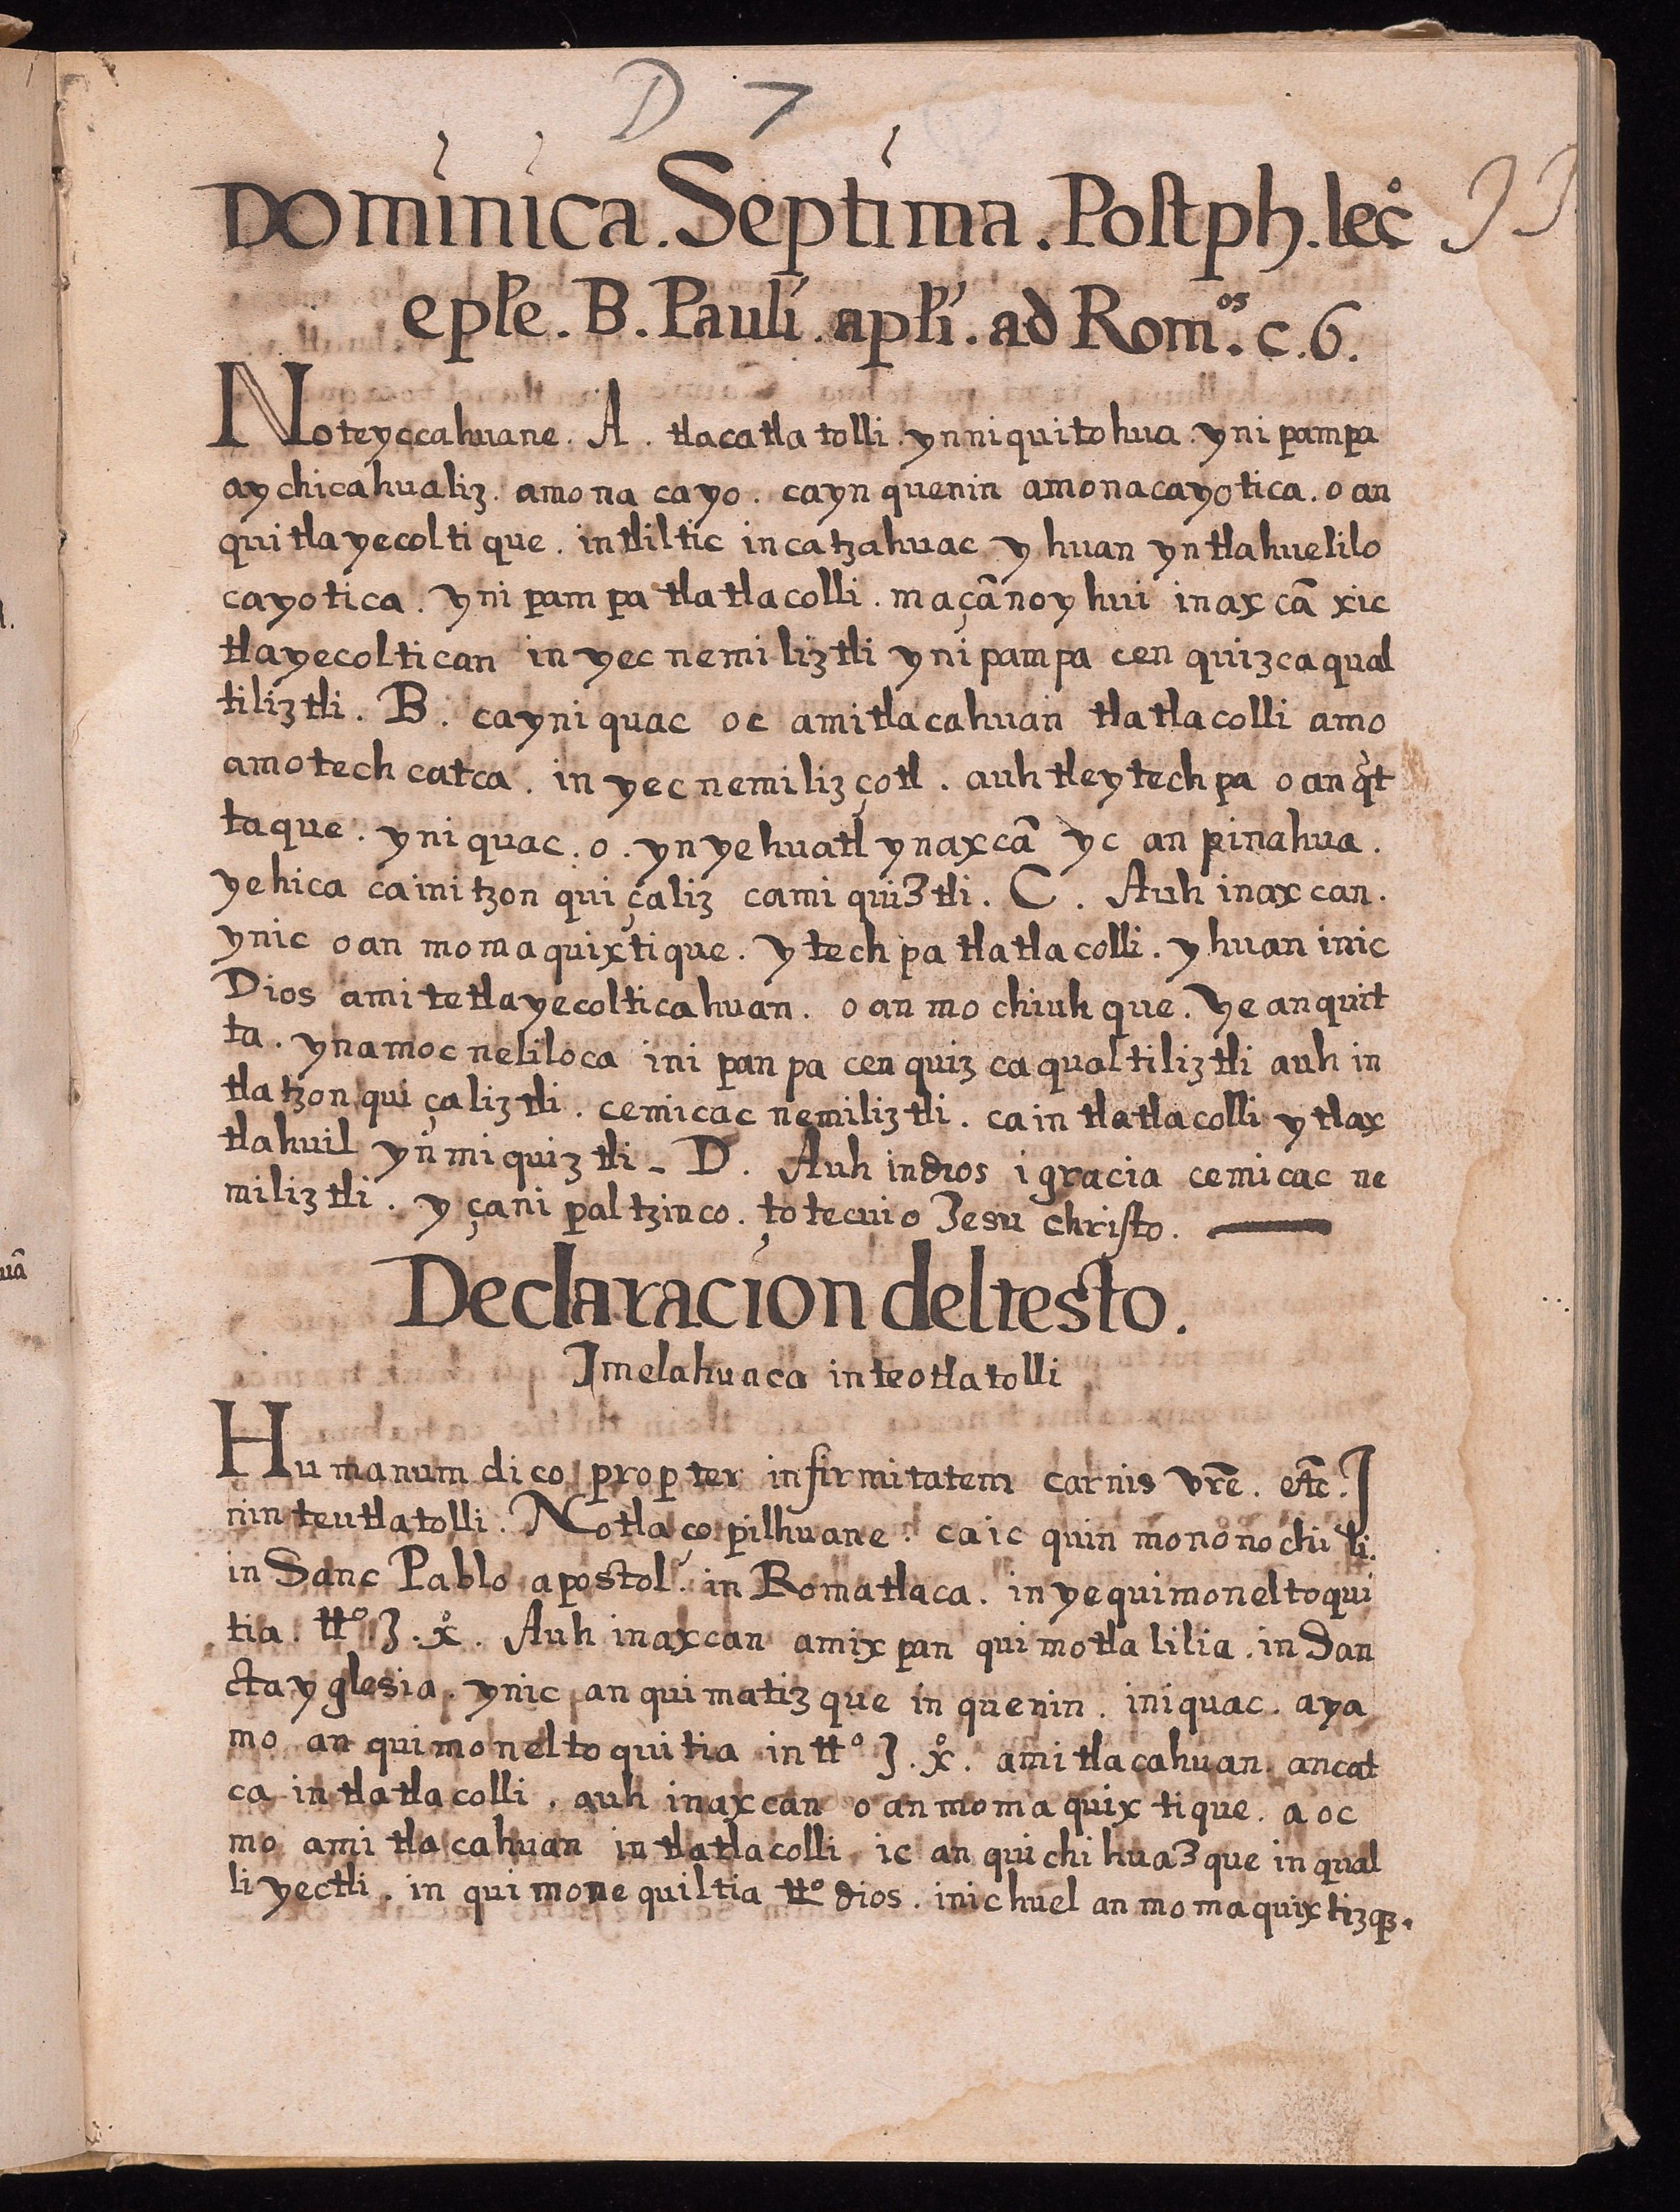 D 7
Dominica. Septima. Postph. lec̊ 93
eple. B. Pauli. apli. ad Rom.os c. 6.
Noteyccahuane. A. tlacatla tolli. ynniquitohua. yni pampa
aychicahualiz. amo na cayo. cayn quenin amonacayotica. o an
quitlayecoltique. intliltic incatzahuac y huan yntlahuelilo
cayotica. yni pampa tlatlacolli. maçãnoyhui inaxcã xic
tlayecoltican in yec nemiliztli yni pampa cen quizcaqual
tiliztli. B. cayni quac oc amitlacahuan tlatlacolli amo
amotech catca. in yec nemilizçotl. auh tleytechpa o an q̃t
taque. yni quac. o. ynyehuatl ynaxcã yc an pinahua.
yehica cainitzon quiçaliz cami quiztli. C. Auh inaxcan.
ynic oan momaquixtique. ytechpa tlatlacolli. y huan inic
Dios amitetlayecolticahuan. o an mo chiuhque. Ye anquit
ta. ynamocneliloca ini panpa cenquizcaqualtiliztli auh in
tlatzonquiçaliztli. cemicac nemiliztli. cain tlatlacolli ytlax
tlahuil yn miquiztli - D. Auh indios i gracia cemicac ne
miliztli. y çani paltzinco. totecuio Jesu christo.
Declaracion deltesto.
Jmelahuaca inteotlatolli
Humanum dico propter infirmitatem carnis vrẽ. etc̃. J
nin teutlatolli. Notlaçopilhuane. caic quin mononochili.
in Sanc Pablo apostol. in Romatlaca. in yequimoneltoqui
tia. tt.º J. x̊. Auh inaxcan amixpan quimotlalilia. in San
cta yglesia. ynic anquimatizque in quenin. iniquac. aya
mo an quimoneltoquitia in tt.º J. x̊. amitlacahuan. ancat
ca in tlatlacolli. auh inaxcan o anmomaquixtique. aoc
mo amitlacahuan in tlatlacolli. ic anquichihuazque in qual
li yectli. in quimonequiltia tt.º dios. inic huel anmomaquixtizq̃.